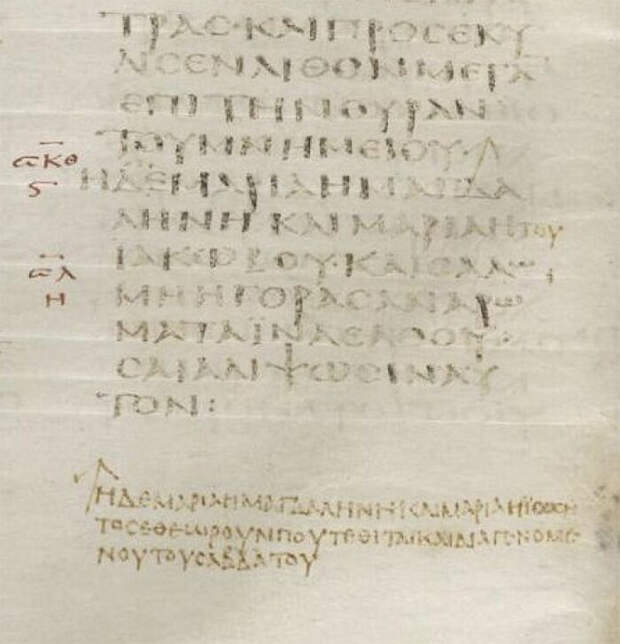 ΤΡΑϹ·ΚΑΙΠΡΟϹΕΚΥ
ΛΙϹΕΝΛΙΘΟΝΜΕΓΑ
ΕΠΙΤΗΝΘΥΡΑΝ
ΤΟΥΜΝΗΜΕΙΟΥ·
ϹΚΘ
Ϛ ΗΔΕΜΑΡΙΑΗΜΑΓΔΑ
ΛΗΝΗΚΑΙΜΑΡΙΑΗΤΟΥ
ϹΛ ΙΑΚΩΒΟΥ·ΚΑΙϹΑΛΩ
Η ΜΗΗΓΟΡΑϹΑΝΑΡΩ
ΜΑΤΑΪΝΑΕΛΘΟΥ
ϹΑΙΑΛΙΨΩϹΙΝΑΥ
ΤΟΝ:
ΗΔΕΜΑΡΙΑΗΜΑΓΔΑΛΗΝΗΚΑΙΜΑΡΙΑΗΪΩϹΗ
ΤΟϹΕΘΕΩΡΟΥΝΠΟΥΤΕΘΙΤΑΙΚΑΙΔΙΑΓΕΝΟΜΕ
ΝΟΥΤΟΥϹΑΒΒΑΤΟΥ